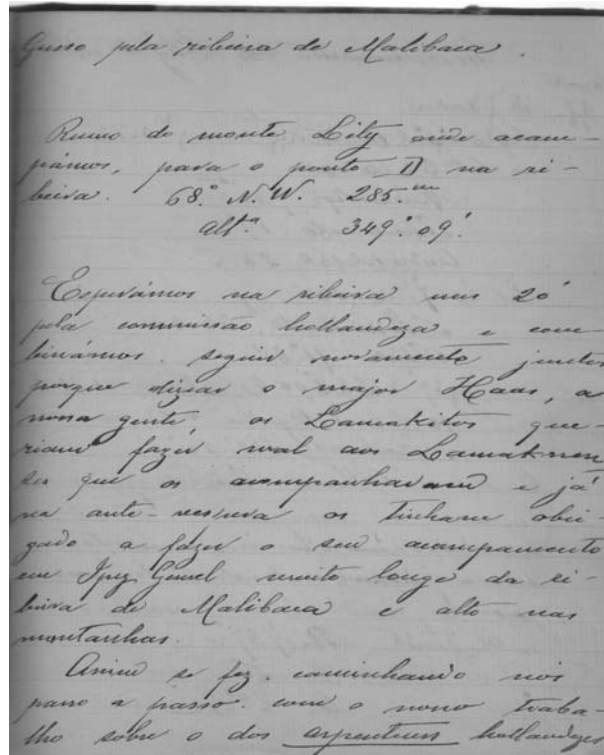 Gusso pela ribeira de Malibaca.
Rumo do monte Lity onde acam-
pámos, para o ponto D na ri-
beira. 68.º N.W. 285.m
alt.ª 349º.09'.
Esperámos na ribeira uns 20'
pela commissão hollandeza e com-
binámos seguir novamente juntos
porque dizia o major Haas, a
nossa gente, os Lamakitos que-
riam fazer mal aos Lamaknen
ses que os acompanhavam e já
na ante-vespera os tinham obri-
gado a fazer o seu acampamento
em Gewel muito longe da ri-
beira de Malibaca e alto nas
montanhas.
Assim se fez. caminhando nós
passo a passo. com o nosso traba-
lho sobre o dos hollandezes